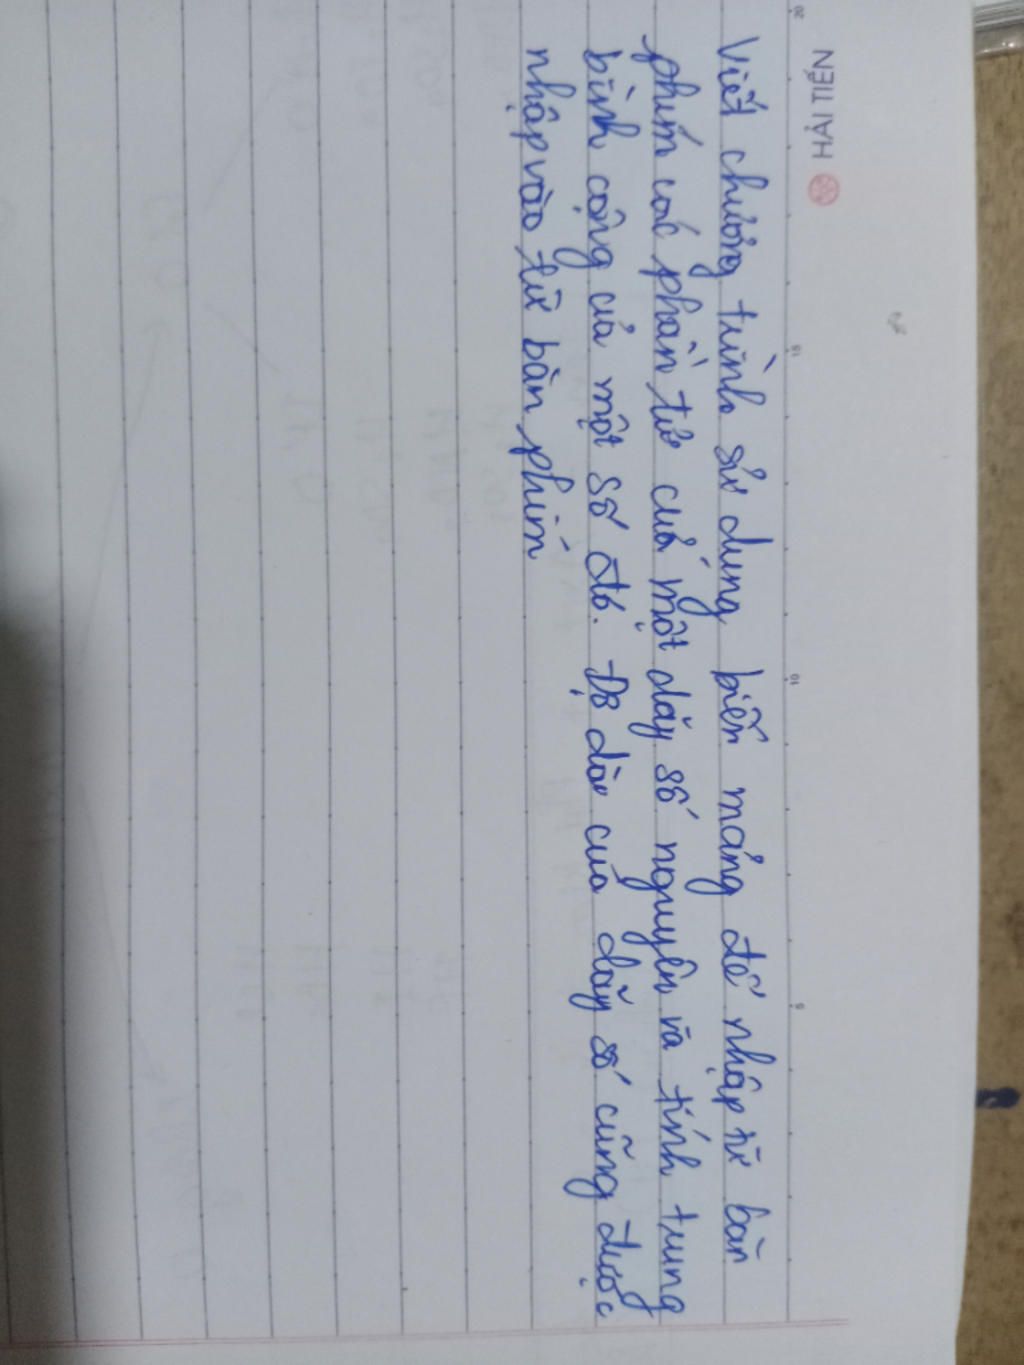 HẢI TIẾN
Viết chương trình sử dụng biến mảng để nhập từ bàn
phím các phần tử của một dãy số nguyên và tính trung
bình cộng của một số đó. Độ dài của dãy số cũng được
nhập vào từ bàn phím
20
15
10
5